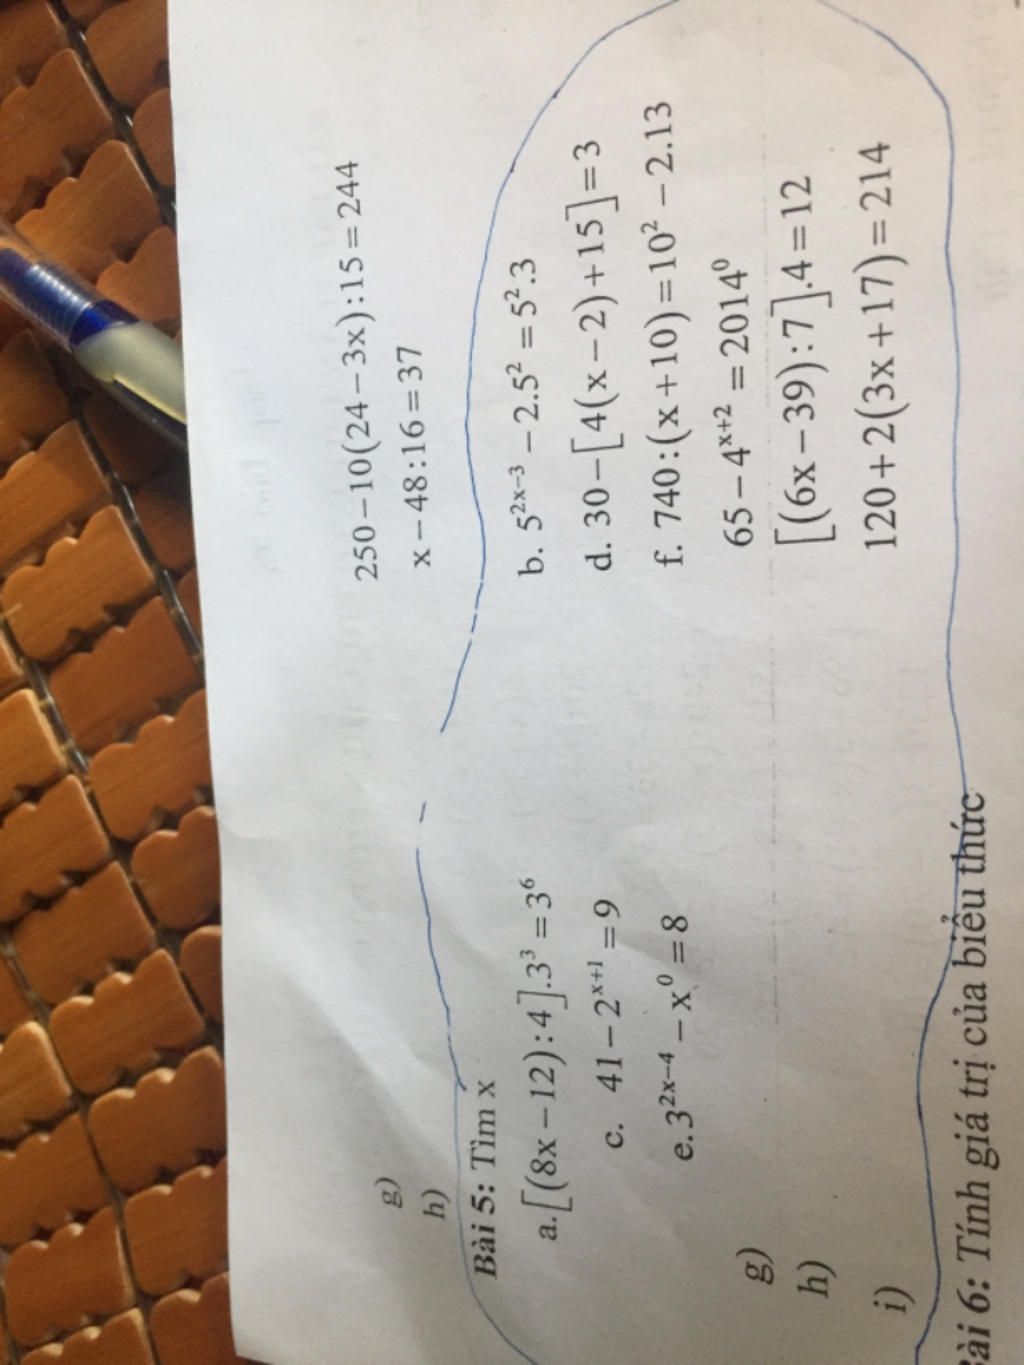 g) 250-10(24-3x):15=244
h) x-48:16=37
Bài 5: Tìm x
a. [(8x-12):4].3³=3⁶ b. 5²ˣ⁻³-2.5²=5².3
c. 41-2ˣ⁺¹=9 d. 30-[4(x-2)+15]=3
e. 3²ˣ⁻⁴-x⁰=8 f. 740:(x+10)=10²-2.13
g) 65-4ˣ⁺²=2014⁰
h) [(6x-39):7].4=12
i) 120+2(3x+17)=214
ài 6: Tính giá trị của biểu thức